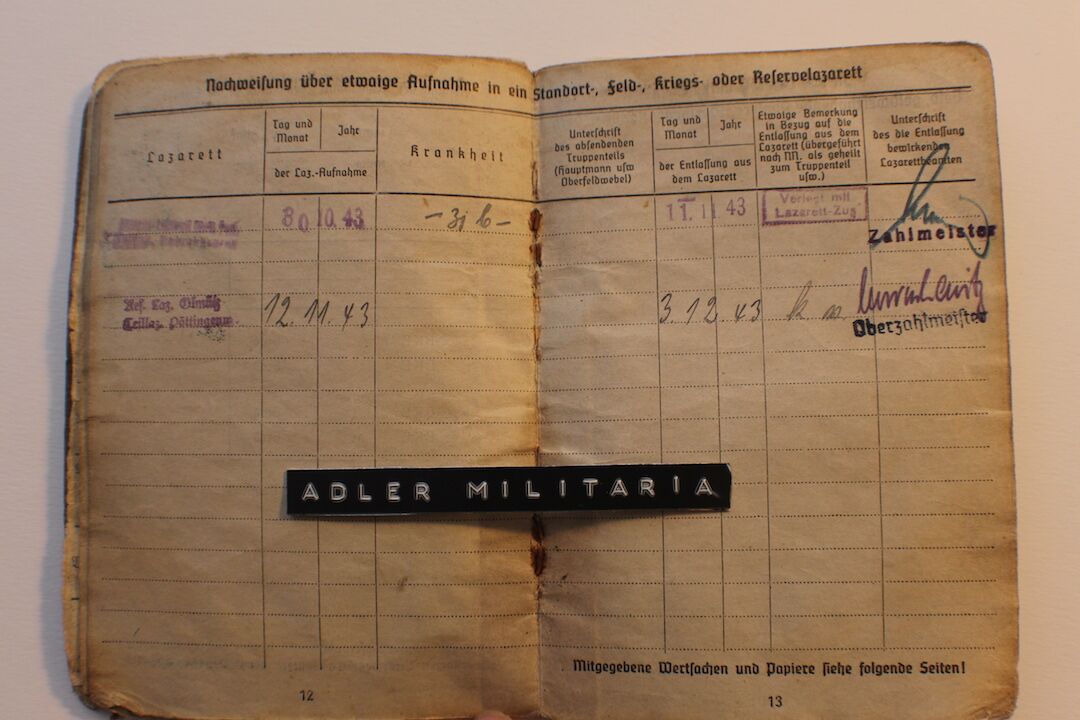 Nachweisung über etwaige Aufnahme in ein Standort-, Feld-, Kriegs- oder Reservelazarett
Lazarett
Tag und Monat
Jahr
der Laz.-Aufnahme
Krankheit
Unterschrift
des absendenden
Truppenteils
(Hauptmann usw
Oberfeldwebel)
Tag und
Monat
Jahr
der Entlassung aus
dem Lazarett
Etwaige Bemerkung
in Bezug auf die
Entlassung aus dem
Lazarett (übergeführt
nach NN. als geheilt
zum Truppenteil
usw.)
Unterschrift
des die Entlassung
bewirkenden
Lazarettbeamten
30 10. 43
- 31 b -
11. 11 43
Verlegt mit
Lazarett-Zug
Zahlmeister
Res. Laz. Olmütz
Teillaz. Pöttingeum
12. 11. 43
3. 12. 43
Oberzahlmeister
ADLER MILITARIA
Mitgegebene Wertsachen und Papiere siehe folgende Seiten!
12
13